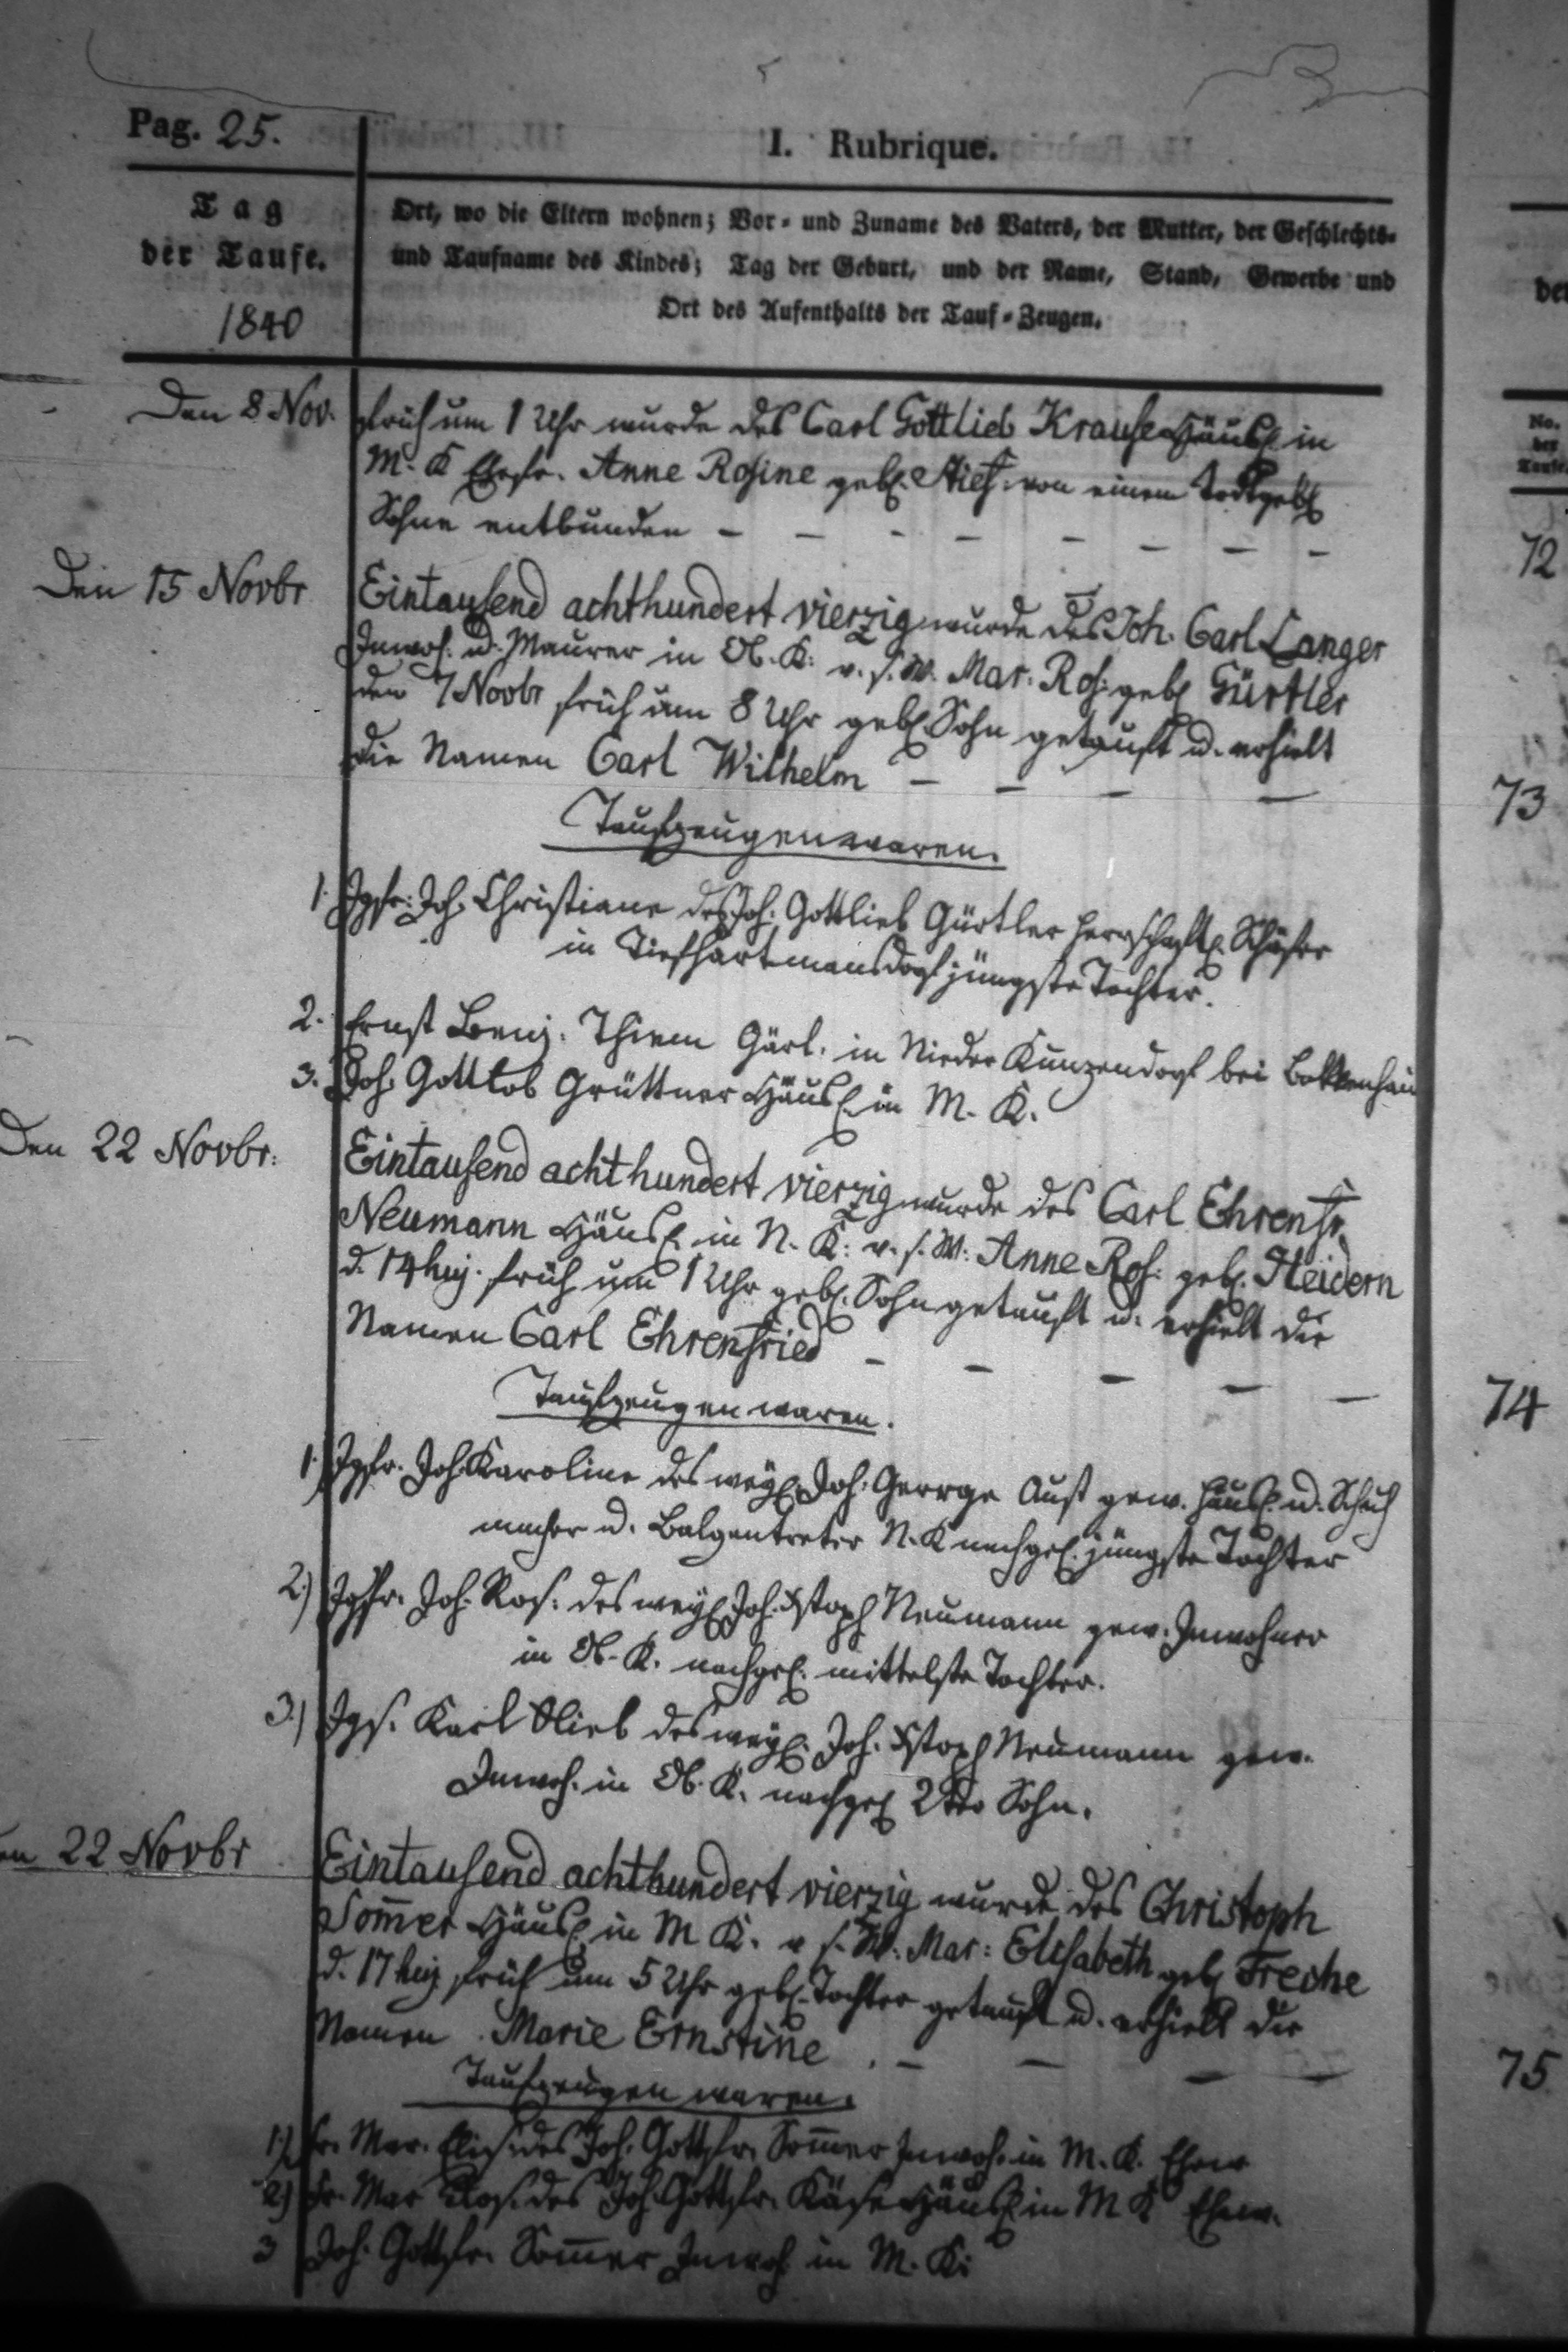 Pag. 25.
I. Rubrique.
Tag
der Taufe.
1840
Ort, wo die Eltern wohnen; Vor- und Zuname des Vaters, der Mutter, der Geschlechts-
und Taufname des Kindes; Tag der Geburt, und der Name, Stand, Gewerbe und
Ort des Aufenthalts der Tauf-Zeugen.
No.
der
Taufe
Den 8 Nov. früh um 1 Uhr wurde des Carl Gottlieb Krause Häusl. in
M. K Ehefr. Anne Rosine geb. von einem todtgeb.
Sohne entbunden – – – – – – – –
72
Den 15 Novbr Eintausend achthundert vierzig wurde des Joh. Carl Langer
Inwoh. u. Maurer in Ob. K. v. s. W. Mar. Ros. geb. Gürtler
den 7 Novbr früh um 8 Uhr geb. Sohn getauft u. erhielt
die Namen Carl Wilhelm – – – –
73
Taufzeugen waren.
1. Jgfr. Joh. Christiane des Joh. Gottlieb Gürtler herrschaftl. Schäfer
in Tiefhartmansdorf jüngste Tochter.
2. Ernst Benj. Thiem Gärt. in Nieder Kunzendorf bei Bolkenhain
3. Joh. Gottlob Grüttner Häusl. in M. K.
Den 22 Novbr. Eintausend achthundert vierzig wurde des Carl Ehrenfr.
Neumann Häusl. in N. K. v. s. W. Anne Ros. geb. Heidern
d. 14 huj. früh um 1 Uhr geb. Sohn getauft u. erhielt die
Namen Carl Ehrenfried – – – – –
74
Taufzeugen waren.
1.) Jgfr. Joh. Karoline des weyl. Joh. George Aust gew. Häusl. u. Schuh
macher u. Balgentreter N. K nachgel. jüngste Tochter
2.) Jgfr. Joh. Ros. des weyl. Joh. Xstoph Neumann gew. Inwohner
in Ob. K. nachgel. mittelste Tochter.
3.) Jgs. Karl Glieb des weyl. Joh. Xstoph Neumann gew.
Inwoh. in Ob. K. nachgel. 2ter Sohn.
en 22 Novbr Eintausend achthundert vierzig wurde des Christoph
Som̄er Häusl. in M K. v s. W. Mar: Elisabeth geb. Freche
d. 17 huj früh um 5 Uhr geb. Tochter getauft u. erhielt die
Namen Marie Ernstine . – – – –
75
Taufzeugen waren.
1.) Fr. Mar. Elis. des Joh. Gottfr. Som̄er Inwoh. in M. K. Ehew
2) Fr. Mar Ros. des Joh Gottfr. Käse Häusl. in M K Ehew.
3 Joh. Gottfr. Som̄er Inwoh. in M. K.